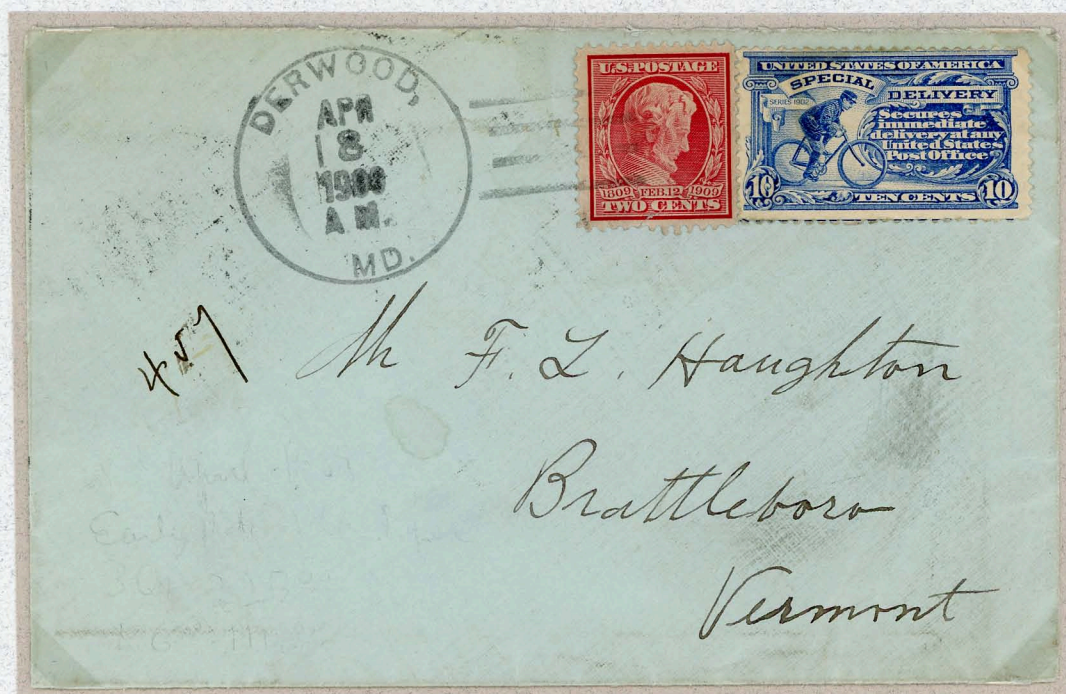 DERWOOD,
APR
8
A.M.
MD.
U.S. POSTAGE
1809 FEB. 12 1909
TWO CENTS
UNITED STATES OF AMERICA
SPECIAL DELIVERY
SERIES 1902
Secures
immediate
delivery at any
United States
Post Office
10 TEN CENTS 10
457
Mr F. L. Haughton
Brattleboro
Vermont